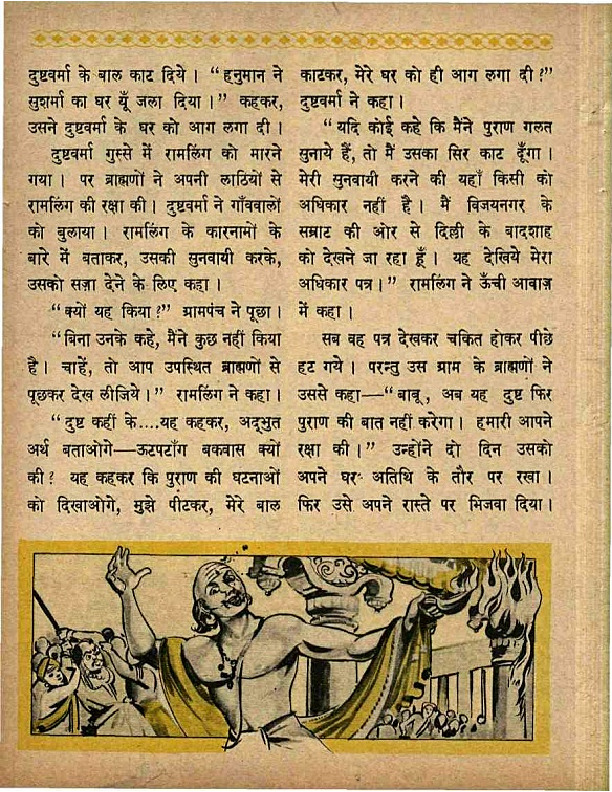 दुष्टवर्मा के बाल काट दिये। “हनुमान ने
सुशर्मा का घर यूँ जला दिया।” कहकर,
उसने दुष्टवर्मा के घर को आग लगा दी।
दुष्टवर्मा गुस्से में रामलिंग को मारने
गया। पर ब्राह्मणों ने अपनी लाठियों से
रामलिंग की रक्षा की। दुष्टवर्मा ने गाँववालों
को बुलाया। रामलिंग के कारनामों के
बारे में बताकर, उसकी सुनवायी करके,
उसको सज़ा देने के लिए कहा।
“क्यों यह किया?” ग्रामपंच ने पूछा।
“बिना उनके कहे, मैंने कुछ नहीं किया
है। चाहें, तो आप उपस्थित ब्राह्मणों से
पूछकर देख लीजिये।” रामलिंग ने कहा।
“दुष्ट कहीं के....यह कहकर, अद्भुत
अर्थ बताओगे—ऊटपटाँग बकवास क्यों
की? यह कहकर कि पुराण की घटनाओं
को दिखाओगे, मुझे पीटकर, मेरे बाल
काटकर, मेरे घर को ही आग लगा दी?”
दुष्टवर्मा ने कहा।
“यदि कोई कहे कि मैंने पुराण गलत
सुनाये हैं, तो मैं उसका सिर काट दूँगा।
मेरी सुनवायी करने की यहाँ किसी को
अधिकार नहीं है। मैं विजयनगर के
सम्राट की ओर से दिल्ली के बादशाह
को देखने जा रहा हूँ। यह देखिये मेरा
अधिकार पत्र।” रामलिंग ने ऊँची आवाज़
में कहा।
सब वह पत्र देखकर चकित होकर पीछे
हट गये। परन्तु उस ग्राम के ब्राह्मणों ने
उससे कहा—“बाबू, अब यह दुष्ट फिर
पुराण की बात नहीं करेगा। हमारी आपने
रक्षा की।” उन्होंने दो दिन उसको
अपने घर अतिथि के तौर पर रखा।
फिर उसे अपने रास्ते पर भिजवा दिया।